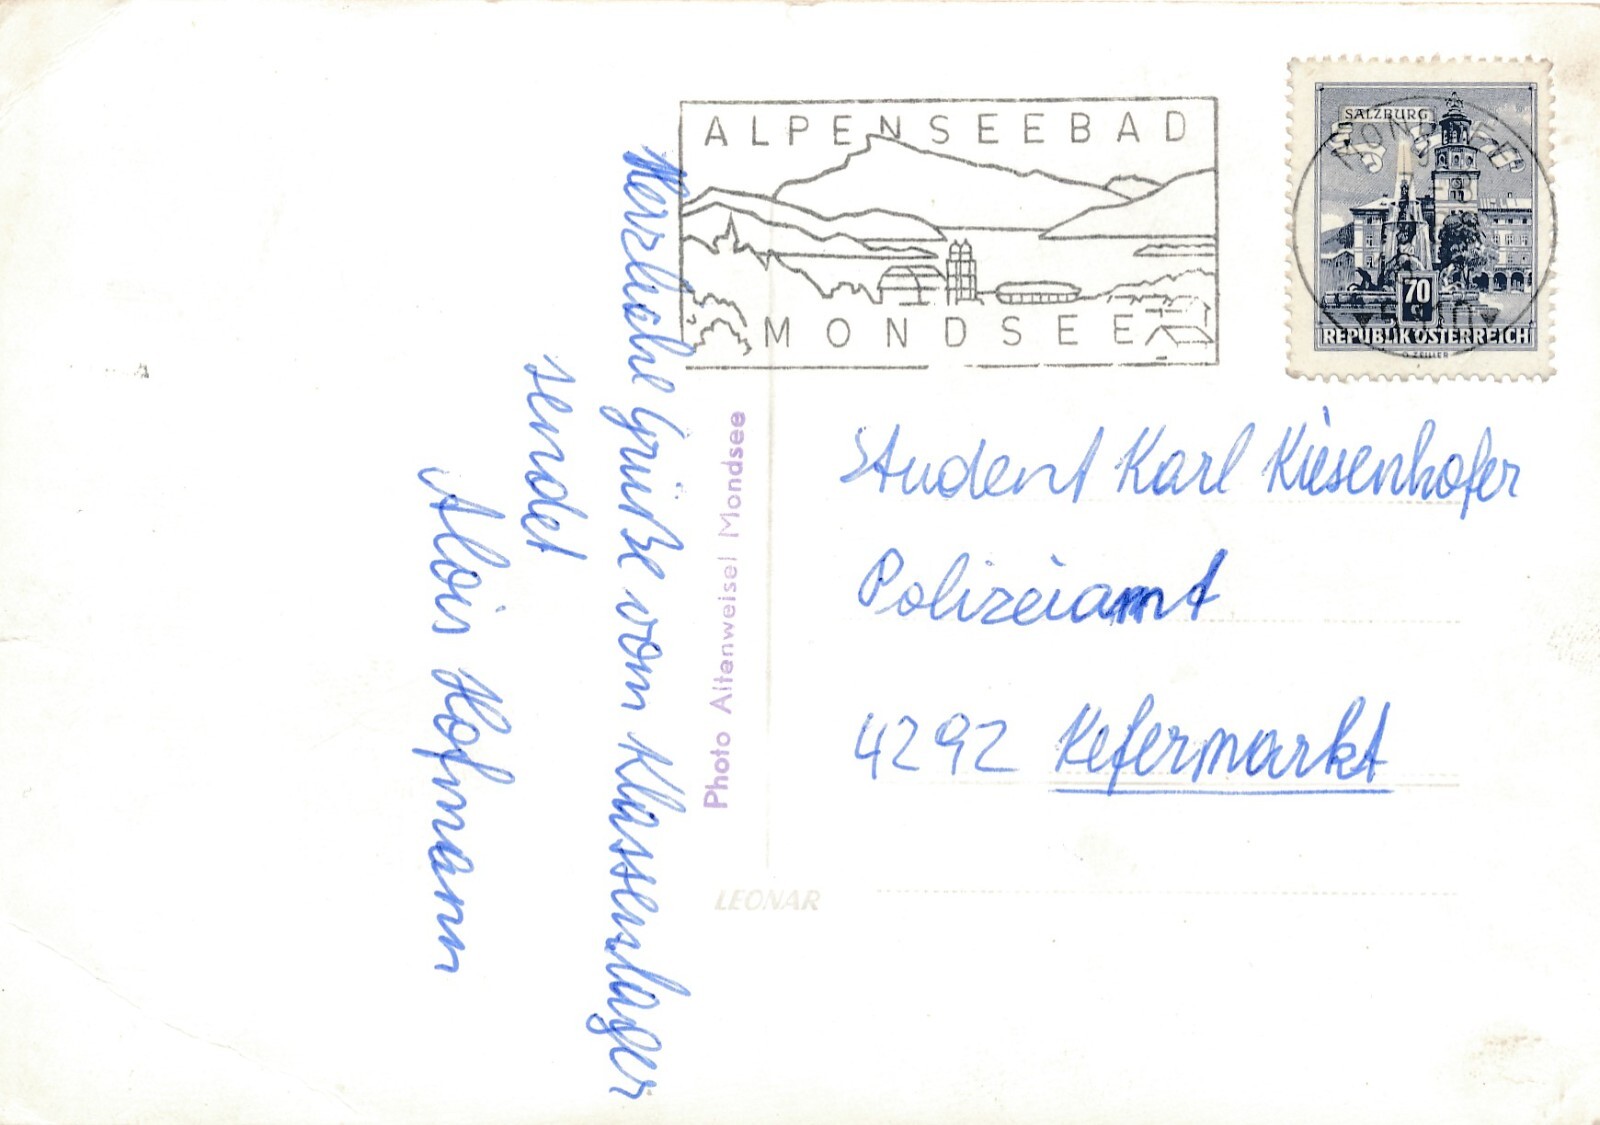 Herzliche Grüße vom Klassenlager
sendet
Alois Hofmann
Photo Altenweisel Mondsee
LEONAR
ALPENSEEBAD
MONDSEE
SALZBURG
70
g
REPUBLIK ÖSTERREICH
O. ZEILLER
MONDSEE
Student Karl Kiesenhofer
Polizeiamt
4292 Kefermarkt